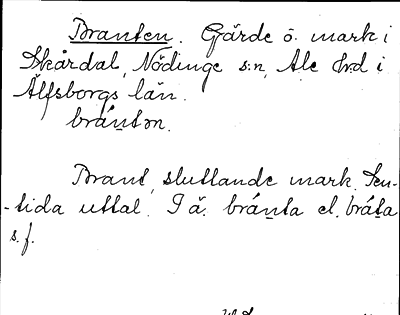 Branten. Gärde o. mark i
Skårdal, Nödinge s:n, Ale hd i
Älfsborgs län.
bránṯən.
Brant, sluttande mark. Sen-
-tida uttal. I ä. bránṯa el. bráṯa
s.f.